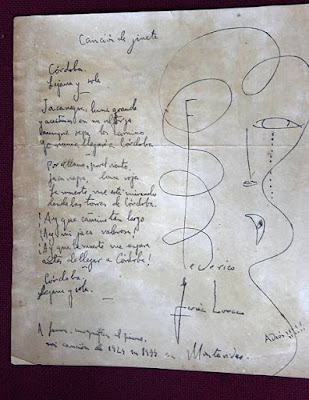 Canción de jinete
Córdoba.
Lejana y sola
Jaca negra, luna grande
y aceitunas en mi alforja
aunque sepa los caminos
yo nunca llegaré a Córdoba
Por el llano, por el viento,
jaca negra, luna roja
la muerte me está mirando
desde las torres de Córdoba.
¡Ay que camino tan largo
¡Ay mi jaca valerosa!
¡Ay que la muerte me espera
antes de llegar a Córdoba!
Córdoba.
Lejana y sola.
Federico
García Lorca
A
mi canción de 1924 en 1933 en Montevideo
Adiós!!!!!